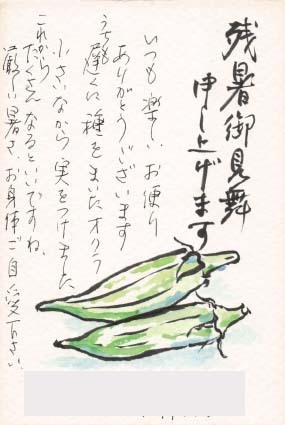 残暑御見舞
申し上げます
いつも楽しいお便り
ありがとうございます
うちも遅くに種をまいたオクラ
小さいながら実をつけました
これから
たくさんなるといいですね。
厳しい暑さ、お身体ご自愛下さい。